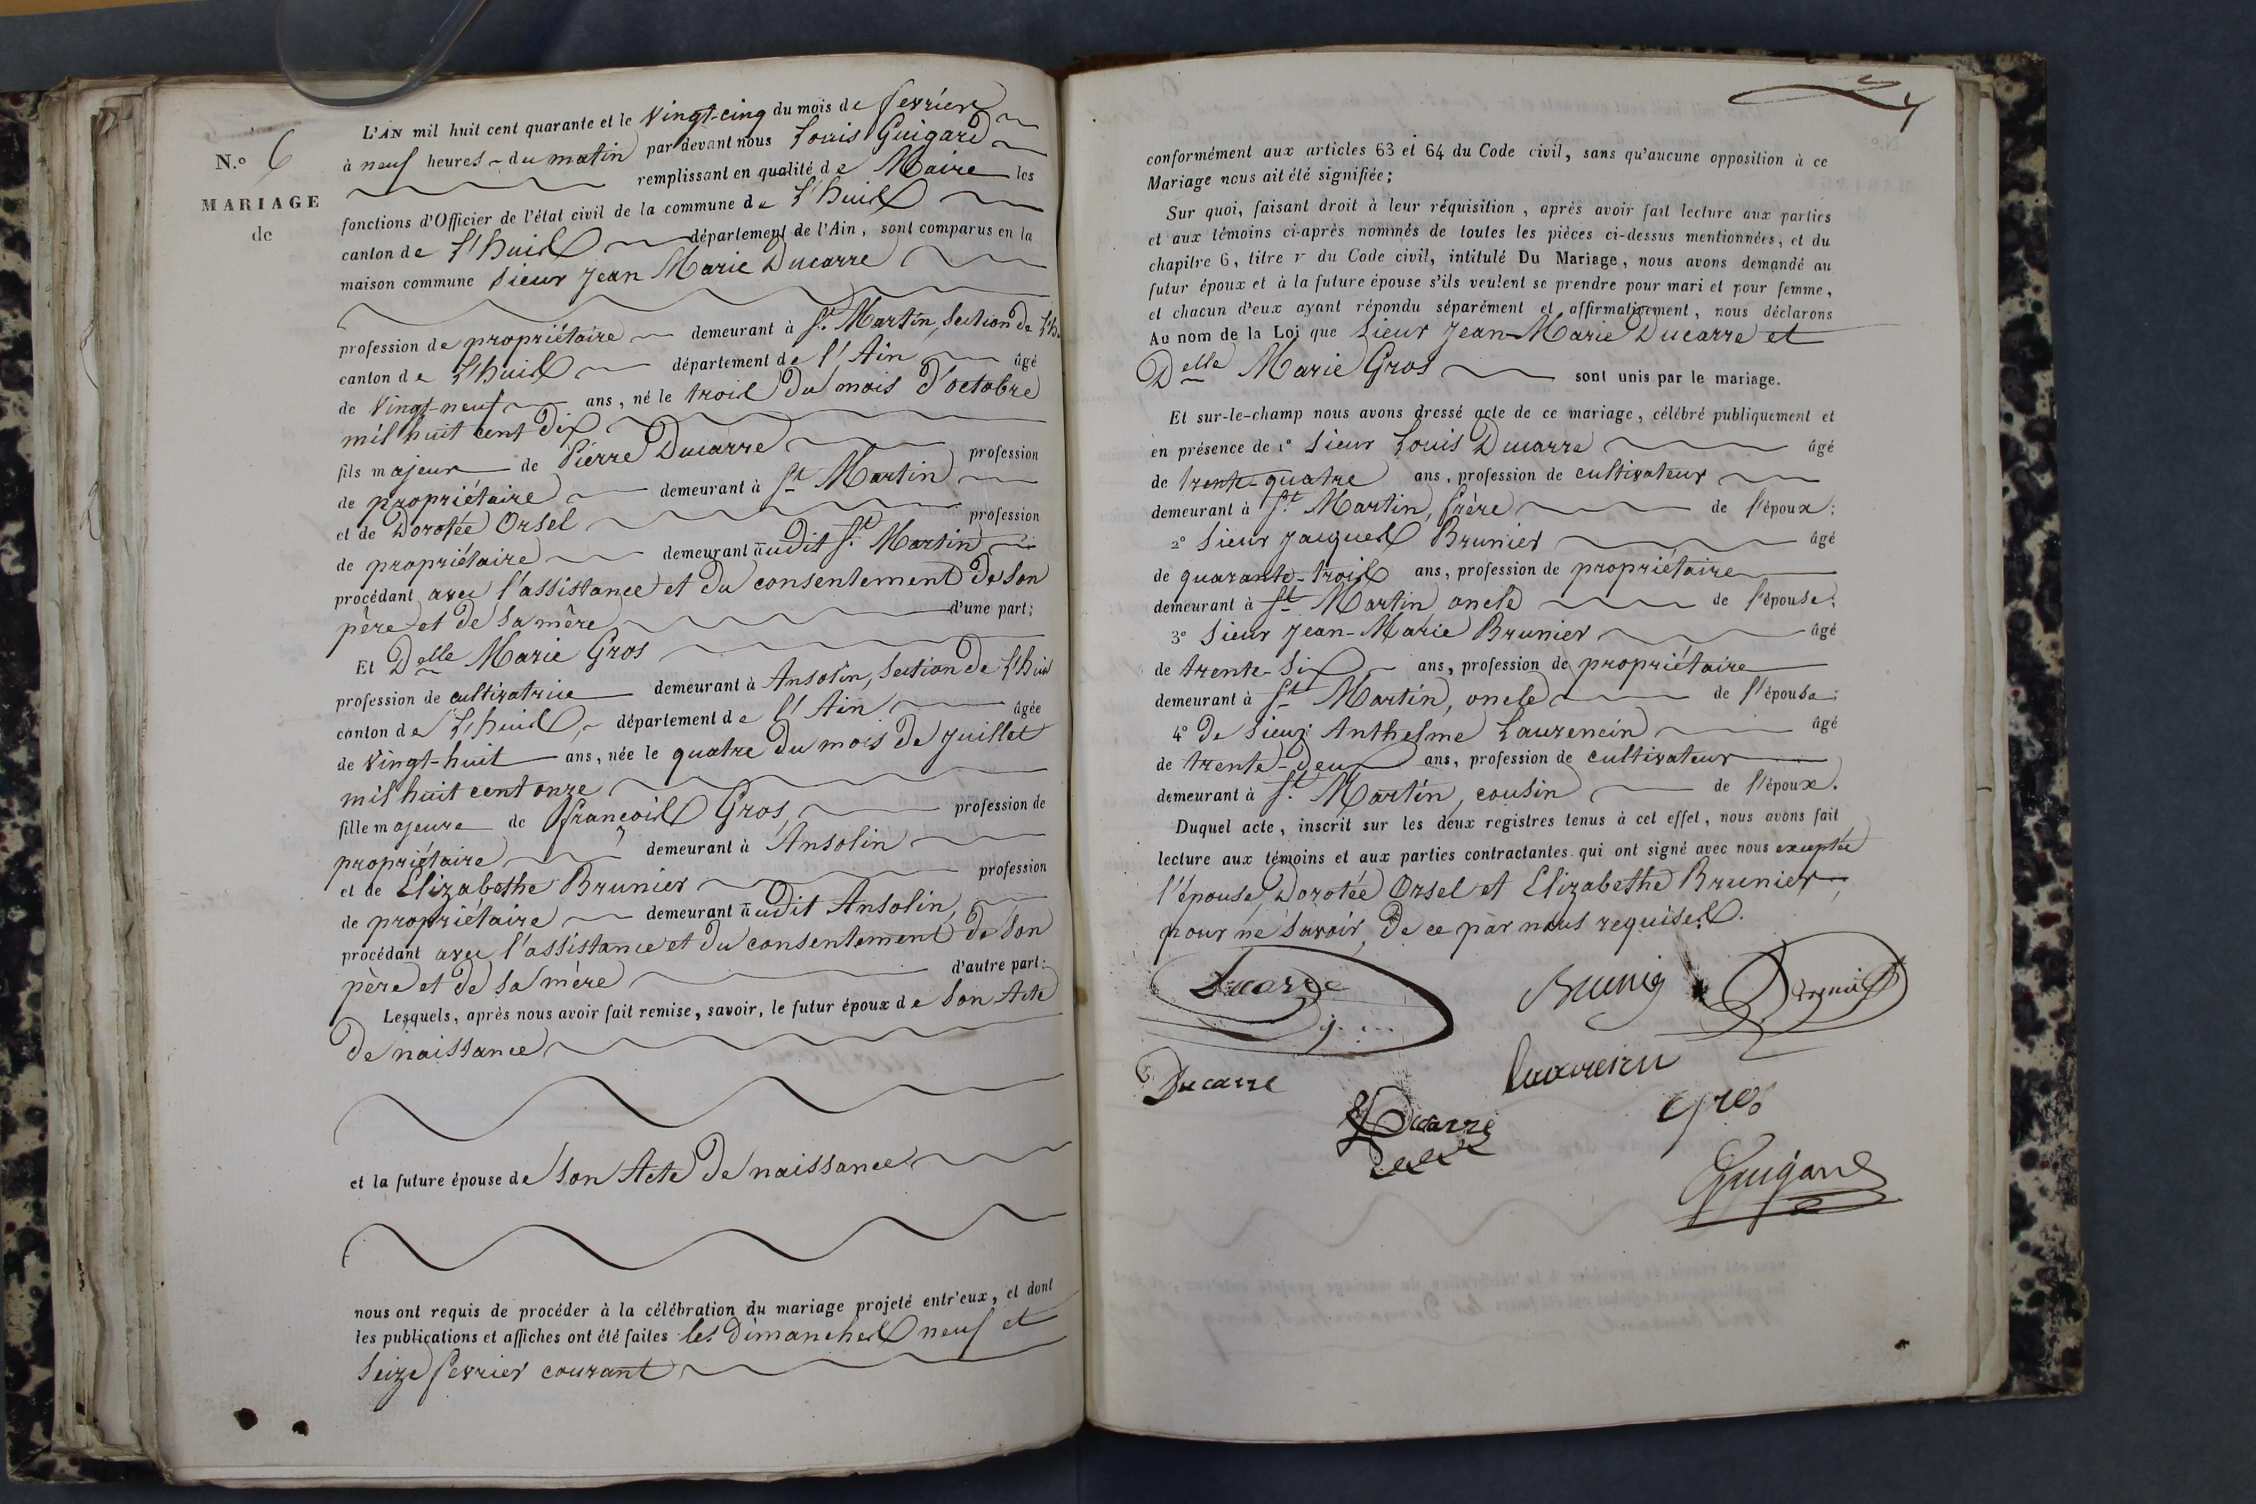 N.º 6
MARIAGE
de
L'AN mil huit cent quarante et le Vingt-cinq du mois de fevrier
à neuf heures du matin par devant nous Louis Guigard
remplissant en qualité de Maire les
fonctions d'Officier de l'état civil de la commune de L'huis
canton de L'huis département de l'Ain, sont comparus en la
maison commune sieur Jean Marie Ducarre
profession de propriétaire demeurant à St. Martin, Section de L'h
canton de L'huis département de l'Ain âgé
de Vingt-neuf ans, né le trois du mois d'octobre
mil huit cent dix
fils majeur de Pierre Ducarre profession
de propriétaire demeurant à St Martin
et de Dorotée Orsel profession
de propriétaire demeurant audit St. Martin
procédant avec l'assistance et du consentement de son
père et de sa mère d'une part;
Et Delle Marie Gros
profession de cultivatrice demeurant à Ansolin, Section de L'huis
canton de L'huis, département de l'Ain âgée
de Vingt-huit ans, née le quatre du mois de Juillet
mil huit cent onze
fille majeure de françois Gros, profession de
propriétaire demeurant à Ansolin
et de Elizabethe Brunier profession
de propriétaire demeurant audit Ansolin,
procédant avec l'assistance et du consentement de son
père et de sa mère d'autre part:
Lesquels, après nous avoir fait remise, savoir, le futur époux de son Acte
de naissance
et la future épouse de son Acte de naissance
nous ont requis de procéder à la célébration du mariage projeté entr'eux, et dont
les publications et affiches ont été faites les dimanches neuf et
seize fevrier courant
conformément aux articles 63 et 64 du Code civil, sans qu'aucune opposition à ce
Mariage nous ait été signifiée;
Sur quoi, faisant droit à leur réquisition, après avoir fait lecture aux parties
et aux témoins ci-après nommés de toutes les pièces ci-dessus mentionnées, et du
chapitre 6, titre v du Code civil, intitulé Du Mariage, nous avons demandé au
futur époux et à la future épouse s'ils veulent se prendre pour mari et pour femme,
et chacun d'eux ayant répondu séparément et affirmativement, nous déclarons
Au nom de la Loi que sieur Jean-Marie Ducarre et
Delle Marie Gros sont unis par le mariage.
Et sur-le-champ nous avons dressé acte de ce mariage, célébré publiquement et
en présence de 1º sieur Louis Ducarre âgé
de trente-quatre ans, profession de cultivateur
demeurant à St. Martin, frère de l'époux;
2º sieur Jacques Brunier âgé
de quarante-trois ans, profession de propriétaire
demeurant à St Martin oncle de l'épouse;
3º sieur Jean-Marie Brunier âgé
de trente-six ans, profession de propriétaire
demeurant à St Martin, oncle de l'épouse;
4º de sieur Anthelme Laurencin âgé
de trente-deux ans, profession de cultivateur
demeurant à St. Martin, cousin de l'époux.
Duquel acte, inscrit sur les deux registres tenus à cet effet, nous avons fait
lecture aux témoins et aux parties contractantes qui ont signé avec nous exceptée
l'épouse, Dorotée Orsel et Elizabethe Brunier
pour ne savoir, de ce par nous requises.
Ducarre
Ducarre
Ducarre
Gros
Guigard